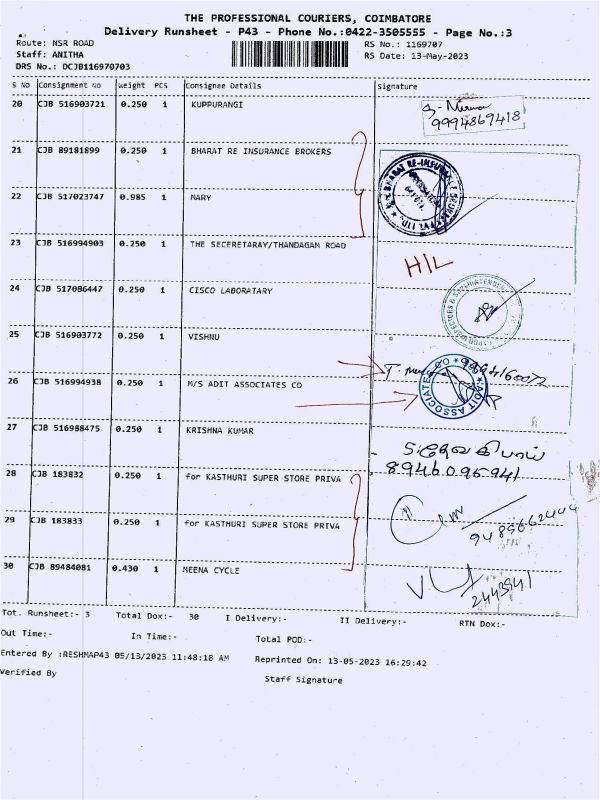 THE PROFESSIONAL COURIERS, COIMBATORE
Delivery Runsheet - P43 - Phone No.:0422-3505555 - Page No.:3
Route: NSR ROAD
RS No.: 1169707
Staff: ANITHA
RS Date: 13-May-2023
DRS No.: DCJB116970703
S No Consignment No Weight PCS Consignee Details Signature
20 CJB 516903721 0.250 1 KUPPURANGI
9994869418
21 CJB 89181899 0.250 1 BHARAT RE INSURANCE BROKERS
22 CJB 517023747 0.985 1 MARY
23 CJB 516994903 0.250 1 THE SECERETARAY/THANDAGAM ROAD
H/L
24 CJB 517086447 0.250 1 CISCO LABORATARY
25 CJB 516903772 0.250 1 VISHNU
26 CJB 516994938 0.250 1 M/S ADIT ASSOCIATES CO
ADIT ASSOCIATES CO
27 CJB 516988475 0.250 1 KRISHNA KUMAR
8946095941
28 CJB 183832 0.250 1 for KASTHURI SUPER STORE PRIVA
29 CJB 183833 0.250 1 for KASTHURI SUPER STORE PRIVA
30 CJB 89484081 0.430 1 MEENA CYCLE
2443941
Tot. Runsheet:- 3 Total Dox:- 30 I Delivery:- II Delivery:- RTN Dox:-
Out Time:- In Time:- Total POD:-
Entered By :RESHMAP43 05/13/2023 11:48:18 AM Reprinted On: 13-05-2023 16:29:42
Verified By Staff Signature